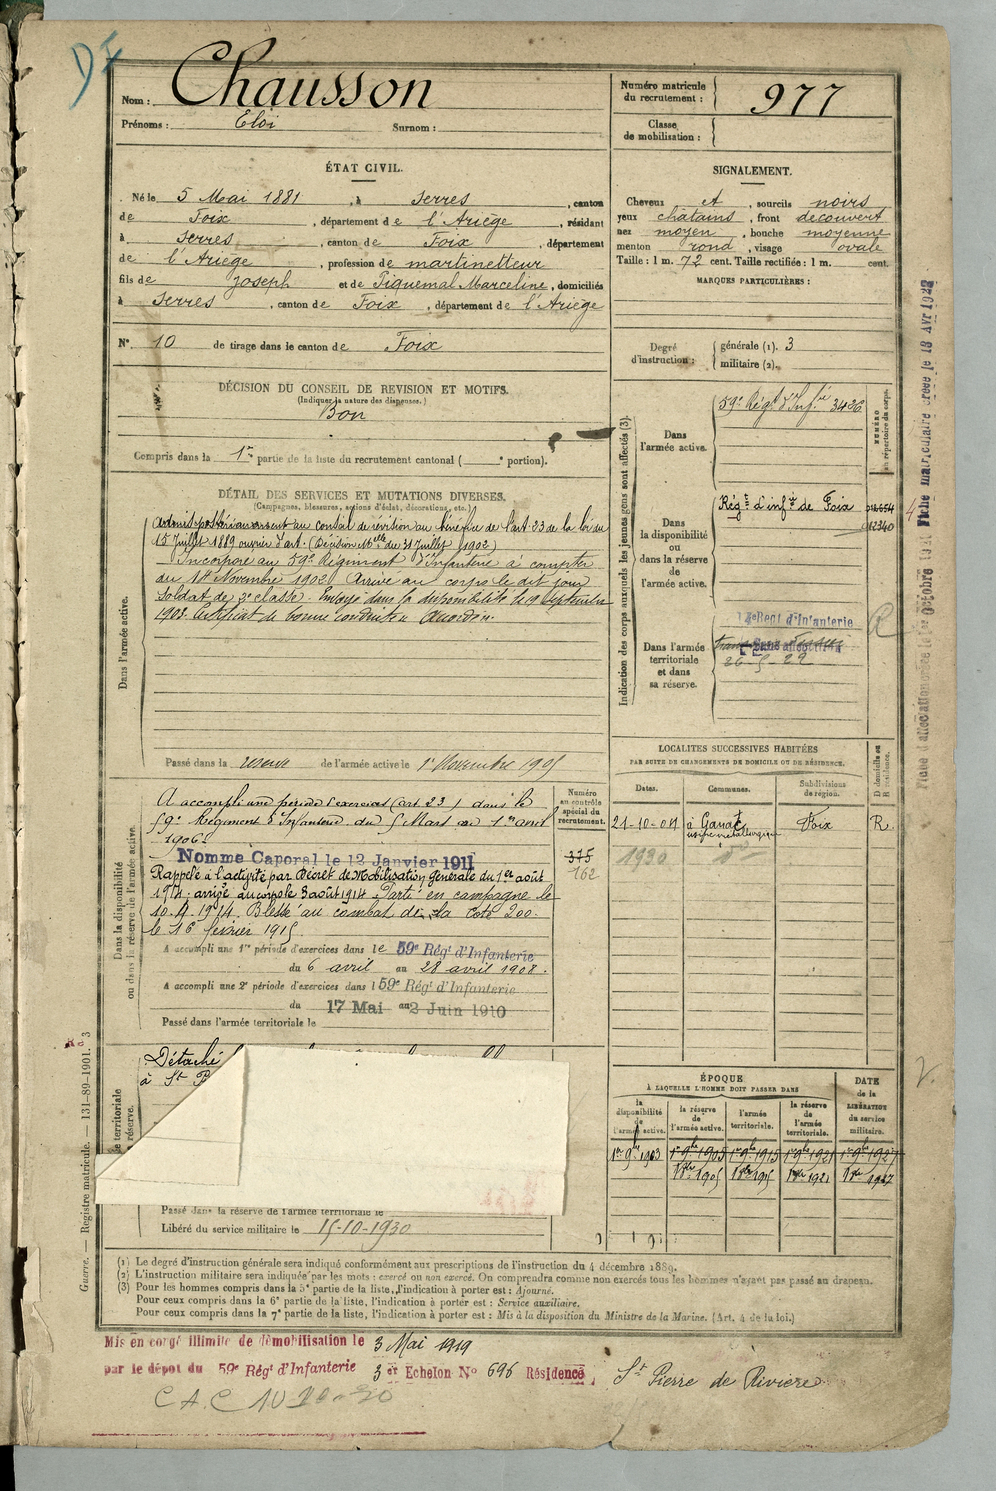 Nom : Chausson
Prénoms : Eloi Surnom :
Numéro matricule du recrutement : 977
Classe de mobilisation :
ÉTAT CIVIL.
Né le 5 Mai 1881, à Serres, canton
de Foix, département de l'Ariège, résidant
à Serres, canton de Foix, département
de l'Ariège, profession de martinetteur
fils de Joseph et de Piquemal Marceline, domiciliés
à Serres, canton de Foix, département de l'Ariège
N° 10 de tirage dans le canton de Foix
SIGNALEMENT.
Cheveux et, sourcils noirs
yeux châtains, front découvert
nez moyen, bouche moyenne
menton rond, visage ovale
Taille : 1 m. 72 cent. Taille rectifiée : 1 m. cent.
MARQUES PARTICULIÈRES :
Degré d'instruction : générale (1). 3
militaire (2).
DÉCISION DU CONSEIL DE REVISION ET MOTIFS.
(Indiquer la nature des dispenses.)
Bon
Compris dans la 1re partie de la liste du recrutement cantonal ( e portion).
DÉTAIL DES SERVICES ET MUTATIONS DIVERSES.
(Campagnes, blessures, actions d'éclat, décorations, etc.)
Dans l'armée active.
Admis postérieurement au conseil de révision au bénéfice de l'art. 23 de la loi du
15 Juillet 1889 ouvrier d'art. (Décision Mlle du 31 Juillet 1902)
Incorporé au 59e Régiment d'Infanterie à compter
du 14 Novembre 1902. Arrivé au corps le dit jour
Soldat de 2e classe. Envoyé dans la disponibilité le 19 septembre
1903. Certificat de bonne conduite accordé.
Passé dans la réserve de l'armée active le 1er Novembre 1905
Indication des corps auxquels les jeunes gens sont affectés (3).
NUMÉRO au répertoire du corps.
Dans l'armée active. 59e Régt d'Infie 3436
Dans la disponibilité ou dans la réserve de l'armée active.
Régt d'infie de Foix
012340
Dans l'armée territoriale et dans sa réserve.
14e Regt d'Infanterie
Sans affectation
26-5-29
R
Dans la disponibilité ou dans la réserve de l'armée active.
Numéro au contrôle spécial du recrutement.
375
162
A accompli une période d'exercices (art 23) dans le
59e Régiment d'Infanterie du 5 Mars au 1er avril
1906.
Nommé Caporal le 12 Janvier 1911
Rappelé à l'activité par Décret de Mobilisation générale du 1er août
1914. arrivé au corps le 3 août 1914 Parti en campagne le
10.9.1914. Blessé au combat de la cote 200.
le 16 février 1915
A accompli une 1re période d'exercices dans le 59e Régt d'Infanterie
du 6 avril au 28 avril 1908.
A accompli une 2e période d'exercices dans l 59e Régt d'Infanterie
du 17 Mai au 2 Juin 1910
Passé dans l'armée territoriale le
LOCALITES SUCCESSIVES HABITÉES
PAR SUITE DE CHANGEMENTS DE DOMICILE OU DE RÉSIDENCE.
Dates. Communes. Subdivisions de région. D domicile ou R résidence.
21-10-04 à Ganac usine métallurgique Foix R.
1920 do
Détaché
à St P
Passé dans la réserve de l'armée territoriale le
Libéré du service militaire le 15-10-1930
ÉPOQUE
À LAQUELLE L'HOMME DOIT PASSER DANS
DATE de la LIBÉRATION du service militaire.
la disponibilité de l'armée active. la réserve de l'armée active. l'armée territoriale. la réserve de l'armée territoriale.
1er 9bre 1903 1er 9bre 1905 1er 9bre 1915 1er 9bre 1921 1er 9bre 1927
(1) Le degré d'instruction générale sera indiqué conformément aux prescriptions de l'instruction du 4 décembre 1889.
(2) L'instruction militaire sera indiquée par les mots : exercé ou non exercé. On comprendra comme non exercés tous les hommes n'ayant pas passé au drapeau.
(3) Pour les hommes compris dans la 5e partie de la liste, l'indication à porter est : Ajourné.
Pour ceux compris dans la 6e partie de la liste, l'indication à porter est : Service auxiliaire.
Pour ceux compris dans la 7e partie de la liste, l'indication à porter est : Mis à la disposition du Ministre de la Marine. (Art. 4 de la loi.)
Mis en congé illimité de démobilisation le 3 Mai 1919
par le dépôt du 59e Régt d'Infanterie 3 er Echelon No 696 Résidence, St Pierre de Rivière
Guerre. — Registre matricule. — 131-89-1901.
Fiche matriculaire créée le 18 Avr 1923